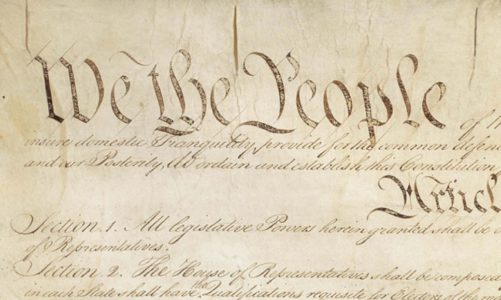 We the People
of th
insure domestic Tranquility, provide for the common defen
and our Posterity, do ordain and establish this Constitution
Articl
Section. 1. All legislative Powers herein granted shall be
of Representatives.
Section. 2. The House of Representatives shall be composed
in each State shall have the Qualifications requisite for Electors of the